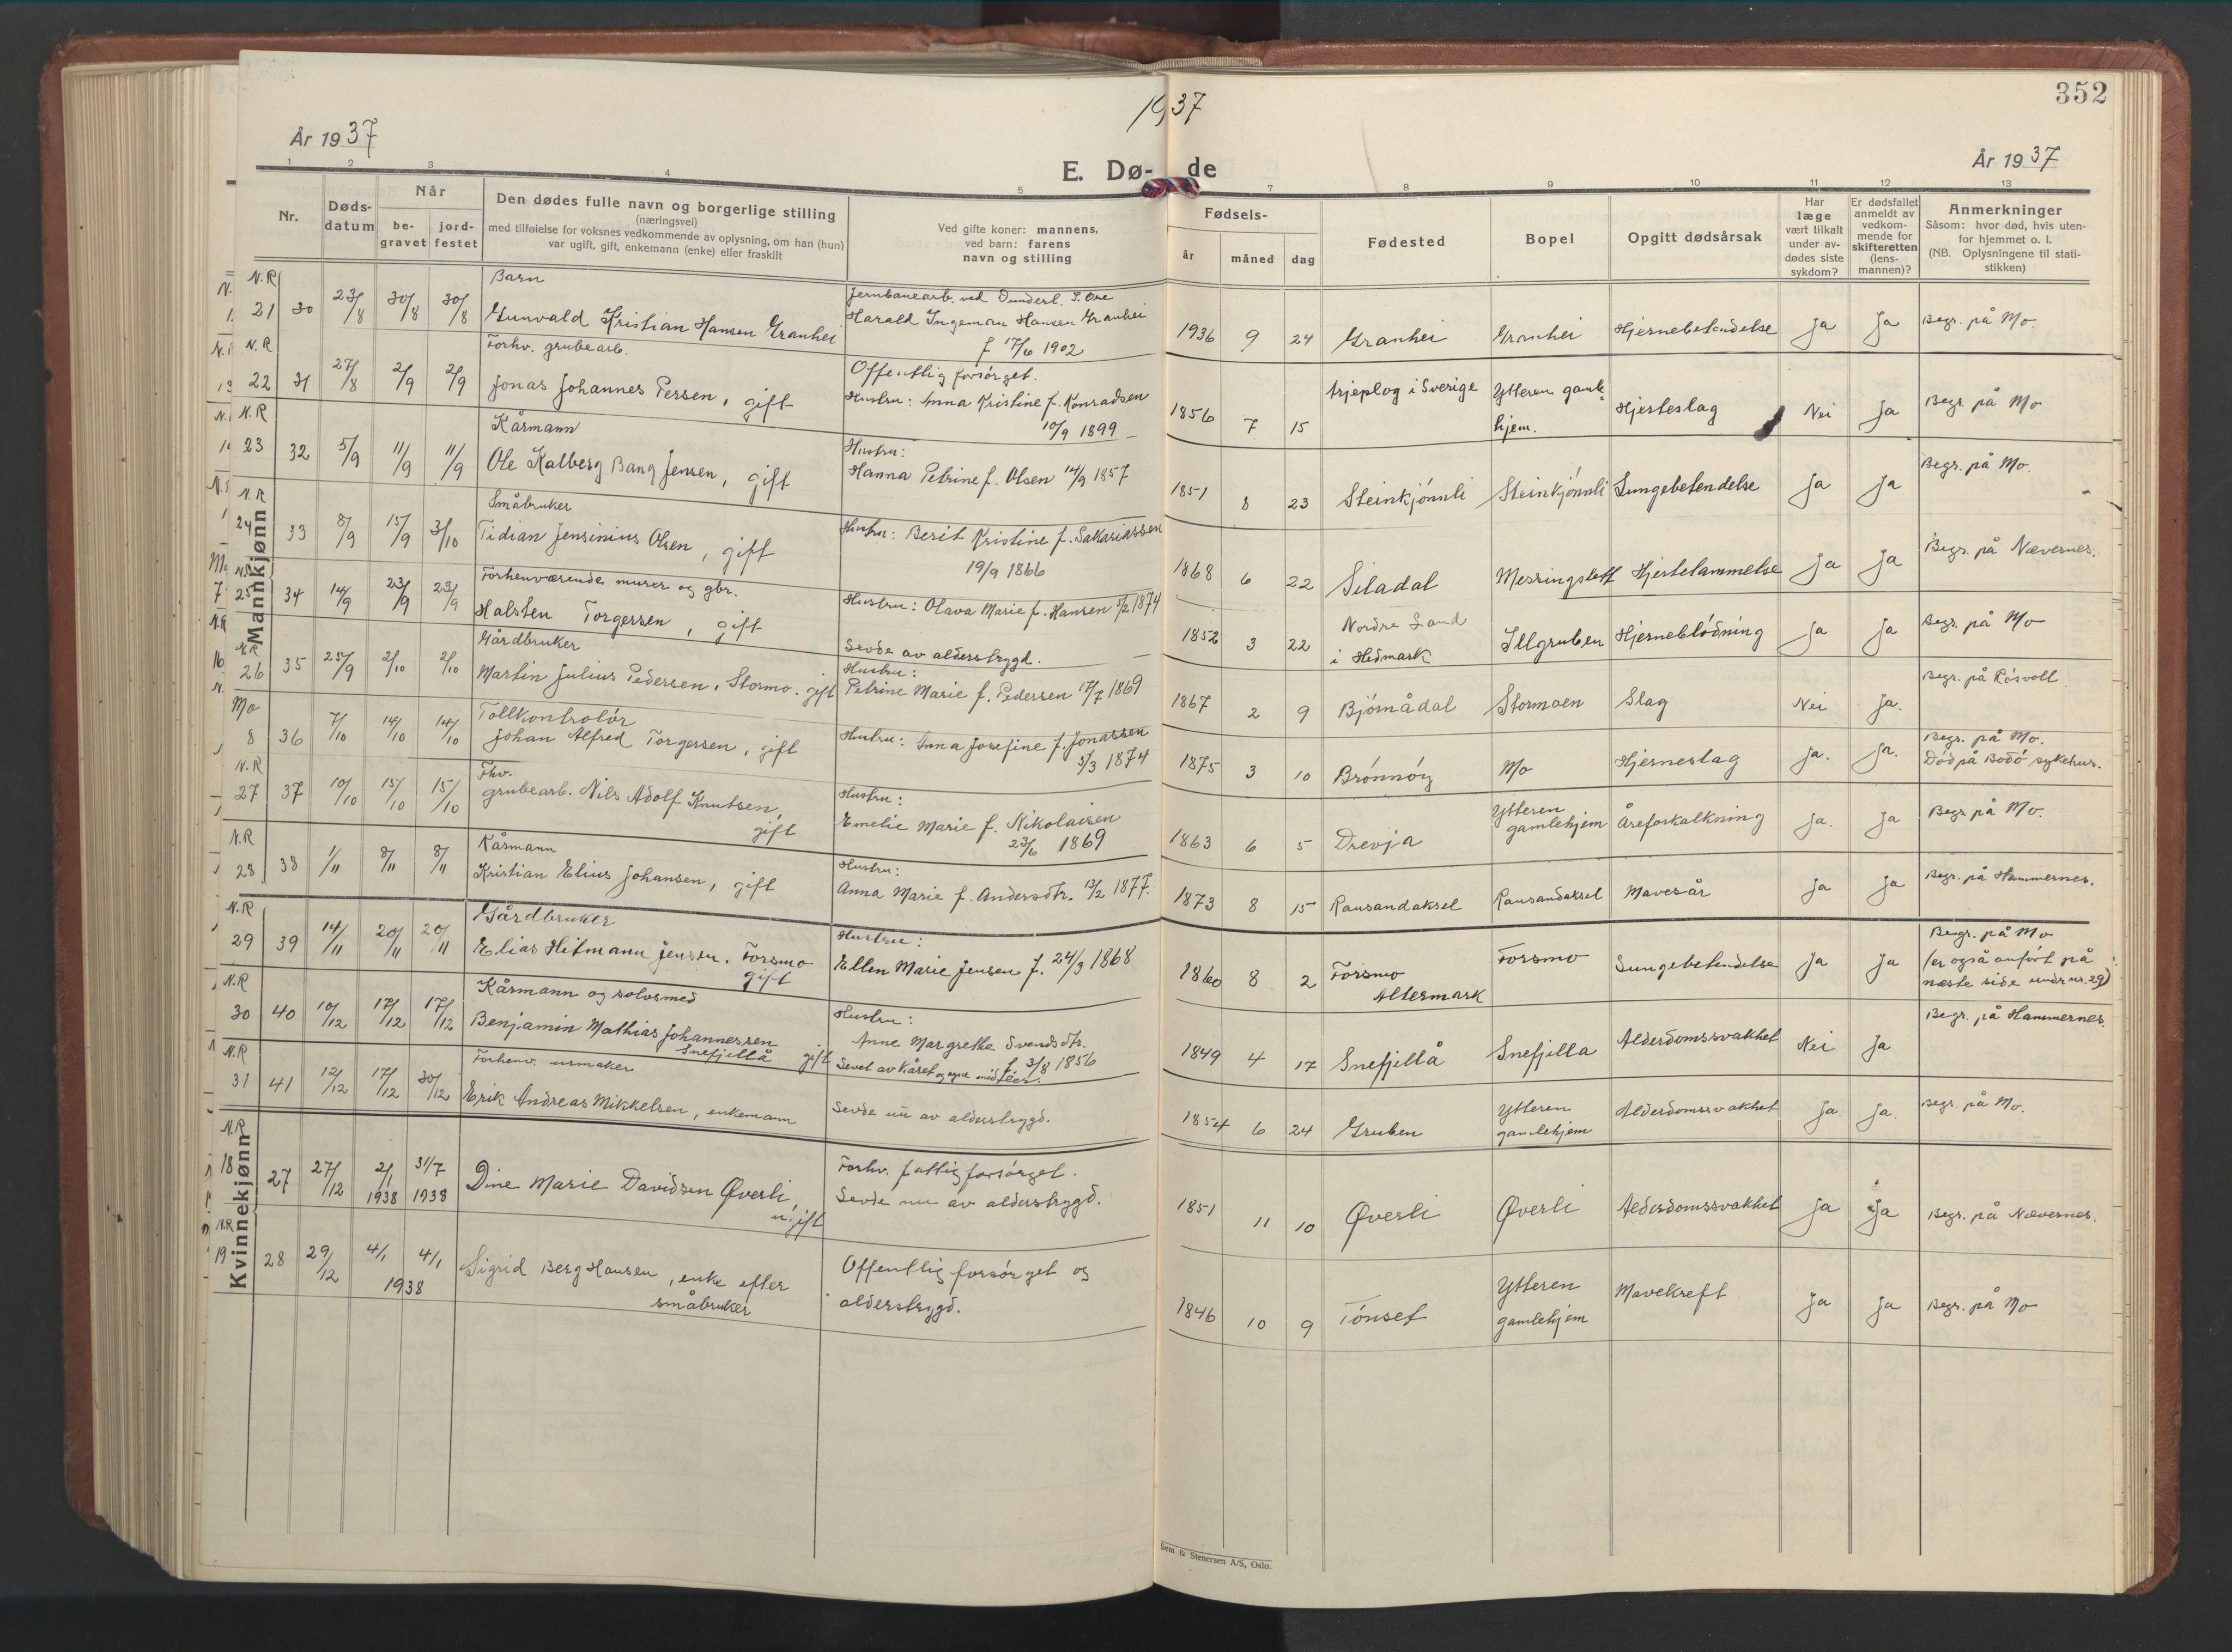 352
1937
År 1937
År 1937
E. Dø-de
1 2 3 4 5 7 8 9 10 11 12 13
Nr.
Døds-
datum
Når
be-
gravet
jord-
festet
Den dødes fulle navn og borgerlige stilling
(næringsvei)
med tilføielse for voksnes vedkommende av oplysning, om han (hun)
var ugift, gift, enkemann (enke) eller fraskilt
Ved gifte koner: mannens,
ved barn: farens
navn og stilling
Fødsels-
år måned dag
Fødested
Bopel
Opgitt dødsårsak
Har
læge
vært tilkalt
under av-
dødes siste
sykdom?
Er dødsfallet
anmeldt av
vedkom-
mende for
skifteretten
(lens-
mannen)?
Anmerkninger
Såsom: hvor død, hvis uten-
for hjemmet o. l.
(NB. Oplysningene til stati-
stikken)
Mannkjønn
N.R Barn Jernbanearb. ved Dunderl. I. Ore
21 30 23/8 30/8 30/8 Gunvald Kristian Hansen Granhei Harald Ingeman Hansen Granhei
f 17/6 1902
1936 9 24 Granhei Granhei Hjernebetendelse Ja Ja Begr. på Mo.
N.R Forhv. grubearb. Offentlig forsørget.
22 31 27/8 2/9 2/9 Jonas Johannes Persen, gift Hustru: Anna Kristine f. Konradsen
10/9 1899
1856 7 15 Arjeplog i Sverige Ytteren gamle
hjem. Hjerteslag Nei Ja Begr. på Mo
N.R Kårmann Hustru:
23 32 5/9 11/9 11/9 Ole Kalberg Bang Jensen, gift Hanna Petrine f. Olsen 14/9 1857
1851 8 23 Steinkjønnli Steinkjønnli Lungebetendelse Ja Ja Begr. på Mo.
N.R Småbruker
24 33 8/9 15/9 3/10 Tidian Jensinius Olsen, gift Hustru: Berit Kristine f. Sakariassen
19/9 1866
1868 6 22 Siladal Messingslett Hjertelammelse Ja Ja Begr. på Nævernes.
N.R Forhenværende murer og gbr.
25 34 14/9 23/9 23/9 Halsten Torgersen, gift Hustru: Olava Marie f. Hansen 5/2 1874
Levde av alderstrygd.
1852 3 22 Nordre Land
i Hedmark Illgruben Hjerneblødning Ja Ja Begr. på Mo
N.R Gårdbruker Hustru:
26 35 25/9 2/10 2/10 Martin Julius Pedersen, Stormo. gift Petrine Marie f. Pedersen 17/7 1869
1867 2 9 Bjørnådal Stormoen Slag Nei Ja. Begr. på Røsvoll
Mo Tollkontrolør
8 36 7/10 14/10 14/10 Johan Alfred Torgersen, gift Hustru: Anna Josefine f. Jonassen
5/3 1874
1875 3 10 Brønnøy Mo Hjerneslag Ja. Ja. Begr. på Mo.
Død på Bodø sykehus.
N.R Fhv. Hustru:
27 37 10/10 15/10 15/10 grubearb. Nils Adolf Knutsen, gift Emelie Marie f. Nikolaisen
23/6 1869
1863 6 5 Drevja Ytteren
gamlehjem Åreforkalkning Ja. Ja Begr. på Mo.
N.R Kårmann Hustru:
28 38 1/11 8/11 8/11 Kristian Elius Johansen, gift Anna Marie f. Andersdtr. 13/2 1877.
1873 8 15 Rausandaksel Rausandaksel Mavesår Ja Ja Begr. på Hammernes.
N.R Gårdbruker Hustru:
29 39 14/11 20/11 20/11 Elias Hitmann Jensen. Forsmo gift Ellen Marie Jensen f. 24/3 1868
1860 8 2 Forsmo
Altermark Forsmo Lungebetendelse Ja Ja Begr. på Mo
(er også anført på
næste side undr nr. 29)
N.R Kårmann og solvsmed Hustru:
30 40 10/12 17/12 17/12 Benjamin Mathias Johannessen
Snefjellå gift Anne Margrethe Svendsdtr.
f. 3/8 1856
Levet av kåret og egne midler.
1849 4 17 Snefjellå Snefjella Alderdomssvakhet Nei Ja Begr. på Hammernes.
N.R Forhenv. urmaker
31 41 12/12 17/12 30/12 Erik Andreas Mikkelsen, enkemann Levde nu av alderstrygd.
1854 6 24 Gruben Ytteren
gamlehjem Alderdomssvakhet Ja. Ja. Begr. på Mo.
Kvinnekjønn
N.R Forhv. fattigforsørget.
18 27 27/12 2/1 1938 31/7 1938 Dine Marie Davidsen Øverli, ugift Levde nu av alderstrygd.
1851 11 10 Øverli Øverli Alderdomssvakhet Ja Ja Begr. på Nævernes.
N.R
19 28 29/12 4/1 4/1 1938 Sigrid Berg Hansen, enke efter
småbruker Offentlig forsørget og
alderstrygd.
1846 10 9 Tønset Ytteren
gamlehjem Mavekreft Ja Ja Begr. på Mo
Sem & Stenersen A/S, Oslo.